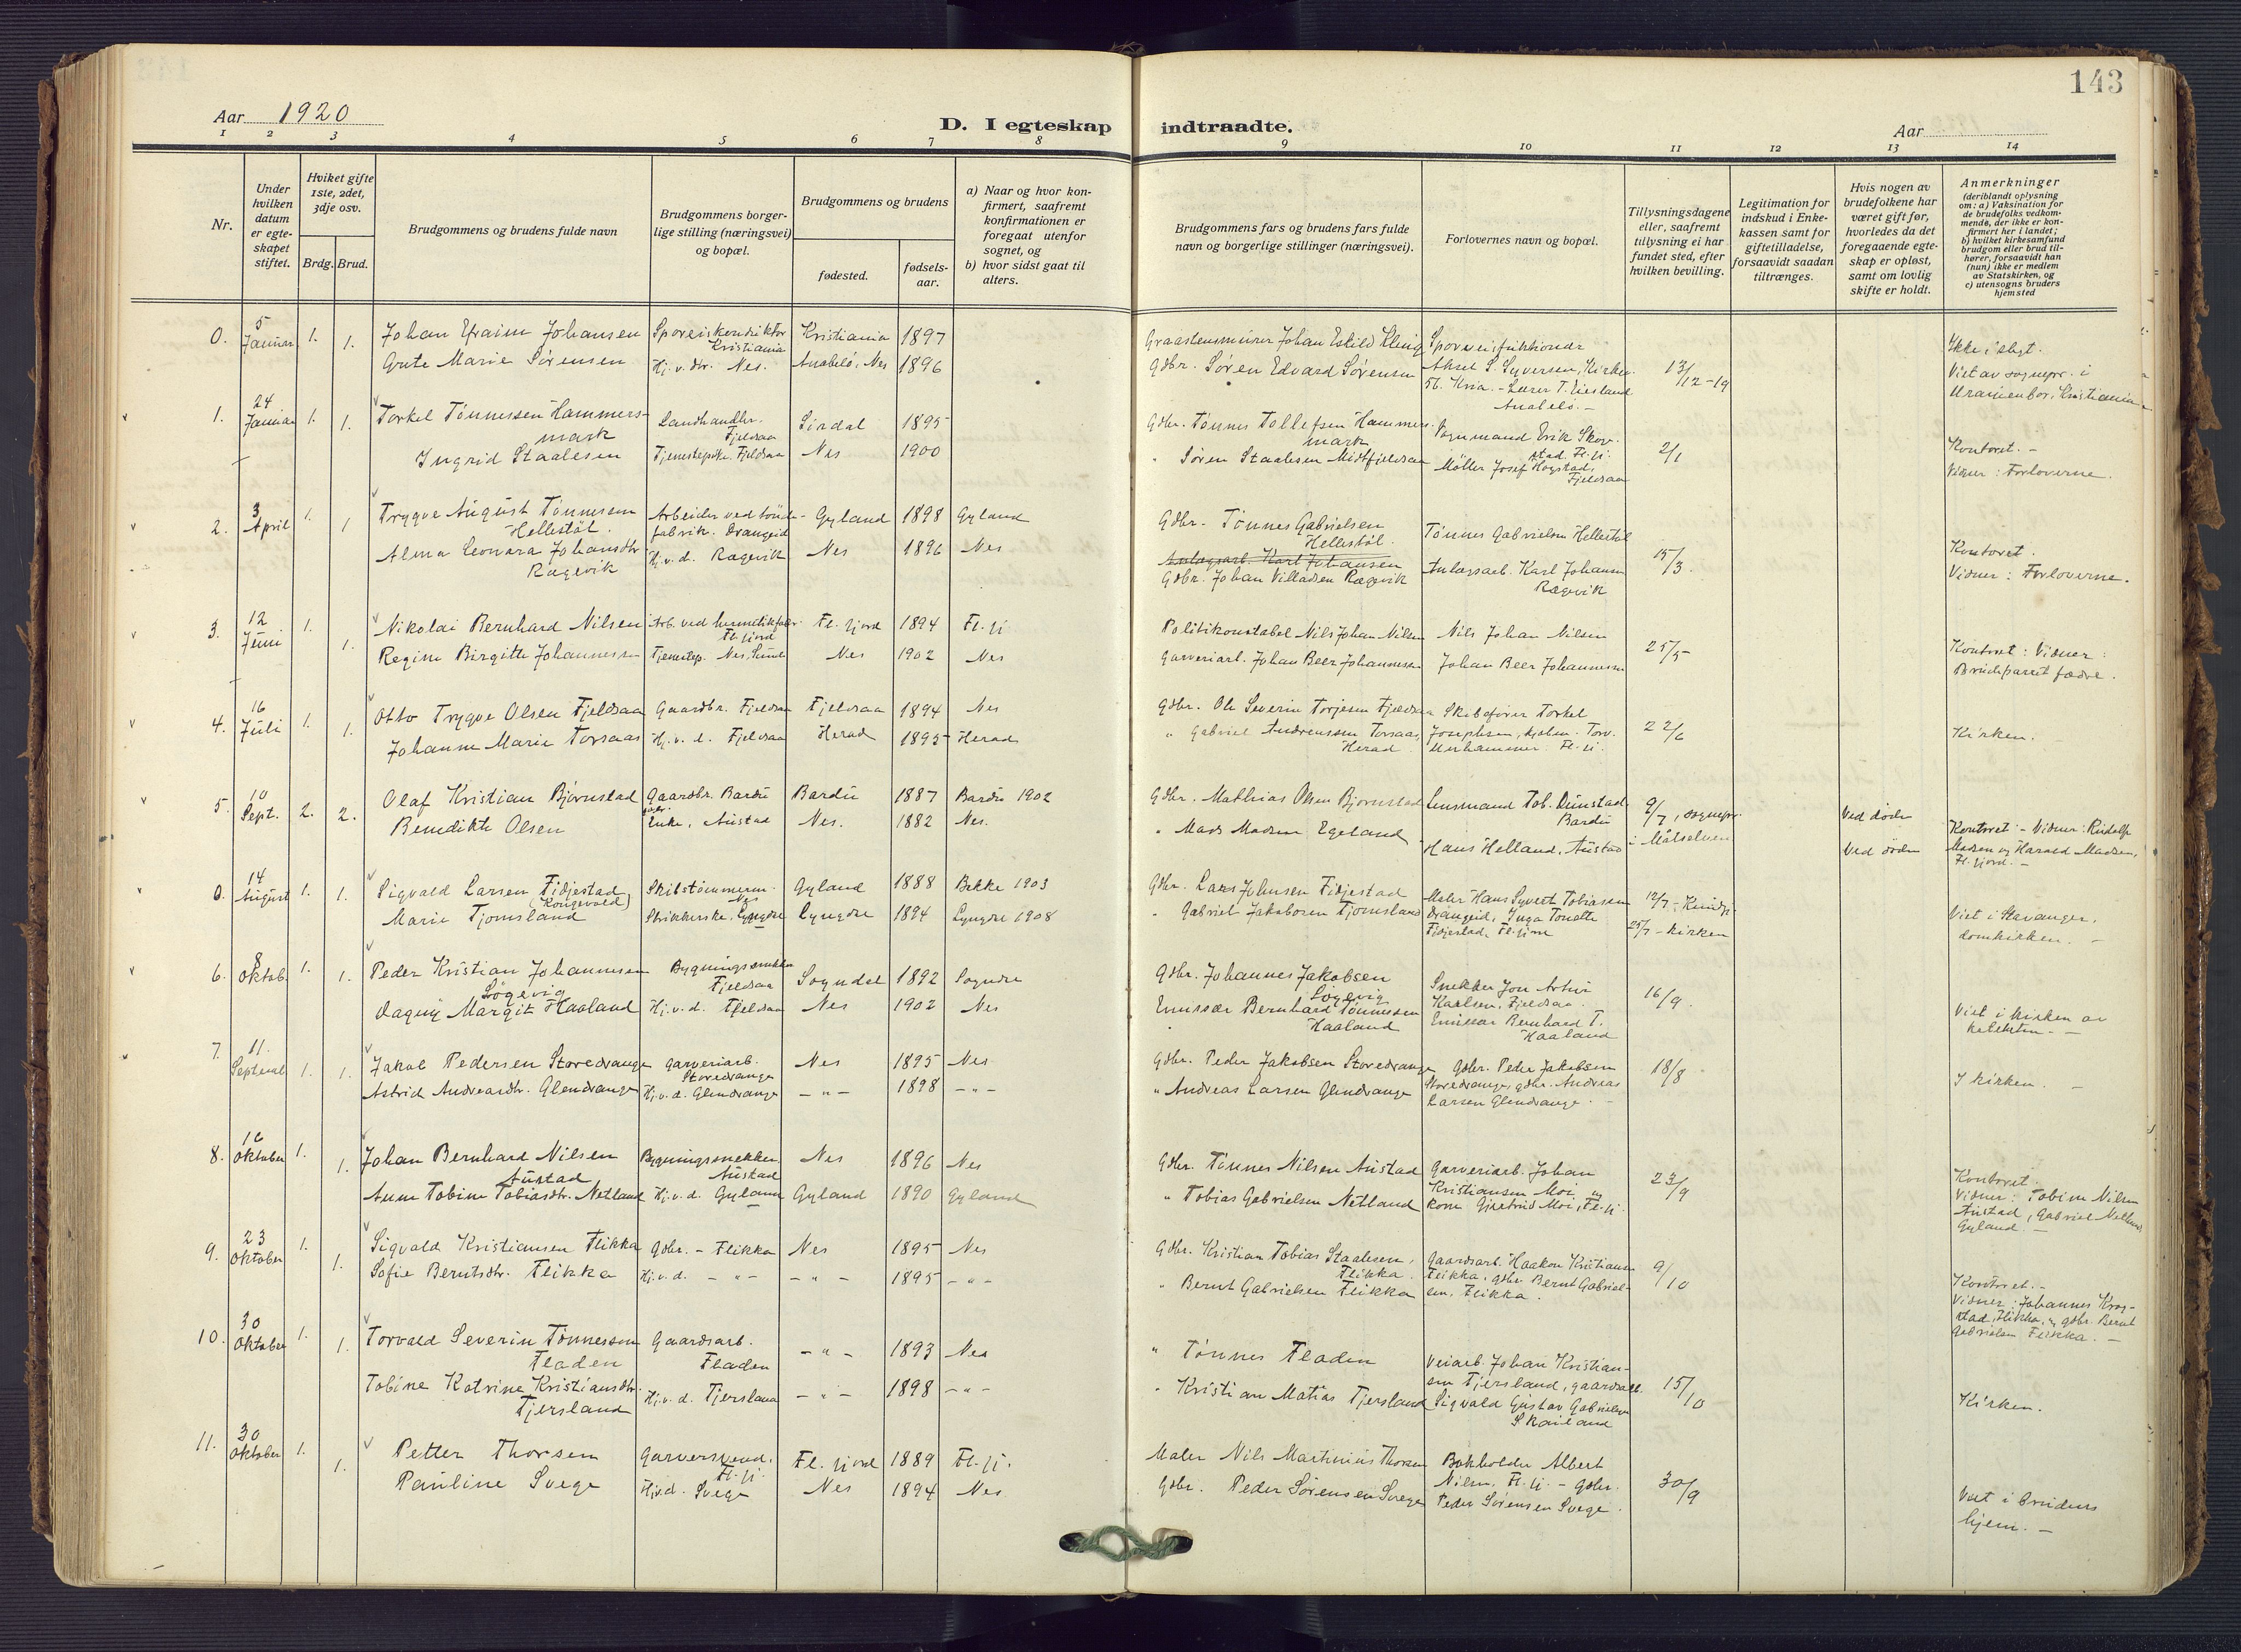 143
Aar 1920
D. I egteskap indtraadte.
Aar
1 2 3 4 5 6 7 8 9 10 11 12 13 14
Nr.
Under hvilken datum er egte- skapet stiftet.
Hviket gifte 1ste, 2det, 3dje osv.
Brdg. Brud.
Brudgommens og brudens fulde navn
Brudgommens borger- lige stilling (næringsvei) og bopæl.
Brudgommens og brudens
fødested.
fødsels- aar.
a) Naar og hvor kon- firmert, saafremt konfirmationen er foregaat utenfor sognet, og
b) hvor sidst gaat til alters.
Brudgommens fars og brudens fars fulde navn og borgerlige stillinger (næringsvei).
Forlovernes navn og bopæl.
Tillysningsdagene eller, saafremt tillysning ei har fundet sted, efter hvilken bevilling.
Legitimation for indskud i Enke- kassen samt for giftetilladelse, forsaavidt saadan tiltrænges.
Hvis nogen av brudefolkene har været gift før, hvorledes da det foregaaende egte- skap er opløst, samt om lovlig skifte er holdt.
Anmerkninger (deriblandt oplysning om: a) Vaksination for de brudefolks vedkom- mende, der ikke er kon- firmert her i landet; b) hvilket kirkesamfund brudgom eller brud til- hører, forsaavidt han (hun) ikke er medlem av Statskirken, og c) utensogns bruders hjemsted
0. 5 Januar 1. 1. Johan Efraim Johansen Sporveiskonduktør Kristiania Kristiania 1897 Graastensmurer Johan Eskild Kling Sporveisfunktionær
Grete Marie Sørensen Hj. v. dtr. Nes. Anabelø, Nes 1896 Gdbr. Søren Edvard Sørensen Aksel S. Syversen, Kirkev. Kria. - Lærer T. Eiesland Anabelø. - 13/12-19 Ikke i slegt. Viet av sognepr. i Uranienbor, Kristiania
1. 24 Januar 1. 1. Torkel Tønnessen Hammers- mark Landhandler. Fjeldsaa Sirdal 1895 Gdbr. Tønnes Tollefsen Hammers- mark Erik Skog- stad Fl. fj.
Ingrid Staalesen Tjenestepike. Fjeldsaa Nes 1900 " Søren Staalesen Midtfjeldsaa Møller Josef Høgstad, Fjeldsaa 2/1 Kontoret. - Vidner: Forloverne.
2. 3 April 1. 1 Trygve August Tønnessen Hellestøl. Arbeider ved tønde- fabrik. Drangeid Gyland 1898 Gyland Gdbr. Tønnes Gabrielsen Hellestøl. Tønnes Gabrielsen Hellestøl
Alma Leonora Johansdtr Rægevik Hj. v. d. Rægevik Nes 1896 Nes Anlægsarb. Karl Johansen
Gdbr. Johan Villadsen Rægevik Anlægsarb. Karl Johansen Rægevik 15/3. Kontoret. Vidner: Forloverne.
3. 12 Juni 1. 1. Nikolai Bernhard Nilsen Arb. ved hermetikfabr. Fl. fjord Fl. fjord 1894 Fl. fj Politikonstabel Nils Johan Nilsen Nils Johan Nilsen
Regine Birgitte Johannessen Tjenestep. Nes, Sunde Nes 1902 Nes Garveriarb. Johan Beer Johannessen Johan Beer Johannessen 25/5 Kontoret: Vidner: Brudeparret fædre.
4. 16 Juli 1. 1. Otto Trygve Olsen Fjeldsaa Gaardbr. Fjeldsaa Fjeldsaa 1894 Nes Gdbr. Ole Severin Torjesen Fjeldsaa Skibsfører Torkel
Johanne Marie Torsaas Hj. v. d. Fjeldsaa Herad 1895 Herad " Gabriel Andreassen Torsaas, Herad. Josephsen, kjøbm. Torv. Unhammer. Fl. fj. 22/6 Kirken.
5. 10 Sept. 2. 2. Olaf Kristian Bjørnstad Gaardbr. Bardu Bardu 1887 Bardu 1902 Gdbr. Mathias Olsen Bjørnstad Lensmand Tob. Dunstad. Bardu 9/7, sognepr. i Målselven Ved døden
Benedikte Olsen Enke, Austad Nes. 1882 Nes. " Mads Madsen Egeland Hans Helland, Austad Ved døden Kontoret - Vidner: Rudolf Madsen og Harald Madsen, Fl. fjord. -
0. 14 August 1. 1. Sigvald Larsen Fidjestad (Kongevold) Skibstømmerm. Nes Gyland 1888 Bakke 1903 Gdbr. Lars Johnsen Fidjestad Maler Hans Syvert Tobiassen 12/7
Marie Tjomsland Strikkerske, Lyngdal Lyngdal 1894 Lyngdal 1908 " Gabriel Jakobsen Tjomsland Drangeid, Inga Tonette Fidjestad, Fl. fjord 25/7 - kirken Viet i Stavanger, domkirken. -
6. 8 Oktob. 1. 1. Peder Kristian Johannessen Løgevig Bygningssnekker Fjeldsaa Sogndal 1892 Sogndal Gdbr. Johannes Jakobsen Løgevig Snekker Jon Artur Karlsen, Fjeldsaa.
Dagny Margit Haaland Hj. v. d. Fjeldsaa Nes 1902 Nes Emissær Bernhard Tønnessen Haaland Emissær Bernhard T. Haaland 16/9. Viet i kirken av kateketen. -
7. 11. Septemb 1. 1. Jakob Pedersen Storedrange Garveriarb. Storedrange Nes 1895 Nes Gdbr. Peder Jakobsen Storedrange Gdbr. Peder Jakobsen
Astrid Andreasdtr. Glendrange Hj. v. d. Glendrange - " - 1898 - " - " Andreas Larsen Glendrange Storedrange, gdbr. Andreas Larsen Glendrange. - 18/8 I kirken. -
8. 16 Oktober 1. 1. Johan Bernhard Nilsen Austad Bygningssnekker Austad Nes 1896 Nes Gdbr. Tønnes Nilsen Austad Garveriarb. Johan
Anne Tobine Tobiasdtr. Netland Hj. v. d. Gyland Gyland 1890 Gyland " Tobias Gabrielsen Netland Kristiansen Moi, og kone Gjertrud Moi, Fl. fj. 23/9 Kontoret. Vidner: Tobine Nilsen Austad, Gabriel Netland Gyland -
9. 23 Oktober 1. 1. Sigvald Kristiansen Flikka Gdbr. - Flikka Nes 1895 Nes Gdbr. Kristian Tobias Staalesen, Flikka. Gaardsarb. Haakon Kristiansen
Sofie Berntsdtr. Flikka Hj. v. d. - " - - " - 1895 - " - " Bernt Gabrielsen Flikka Flikka, gdbr. Bernt Gabriel- sen, Flikka. 9/10 Kontoret. - Vidner: Johannes Krog- stad, Flikka, og gdbr. Bernt Gabrielsen Flikka. -
10. 30 Oktober 1. 1. Torvald Severin Tønnessen Fladen Gaardsarb. Fladen - " - 1893 Nes " Tønnes Fladen Veiarb. Johan Kristian-
Tobine Katrine Kristiansdtr. Tjersland Hj. v. d. Tjersland - " - 1898 - " - " Kristian Matias Tjersland sen Tjersland, gaardsarb. Sigvald Gustav Gabrielsen Skailand 15/10 Kirken.
11. 30 Oktober 1. 1. Petter Thorsen Garversvend. Fl. fj. Fl. fjord 1889 Fl. fj. Maler Nils Martinius Thorsen Bokholder Albert
Pauline Svege Hj.v.d. Svege Nes 1894 Nes Gdbr. Peder Sørensen Svege Nilsen, Fl. fj. - Gdbr. Peder Sørensen Svege. 30/9 Viet i brudens hjem. -